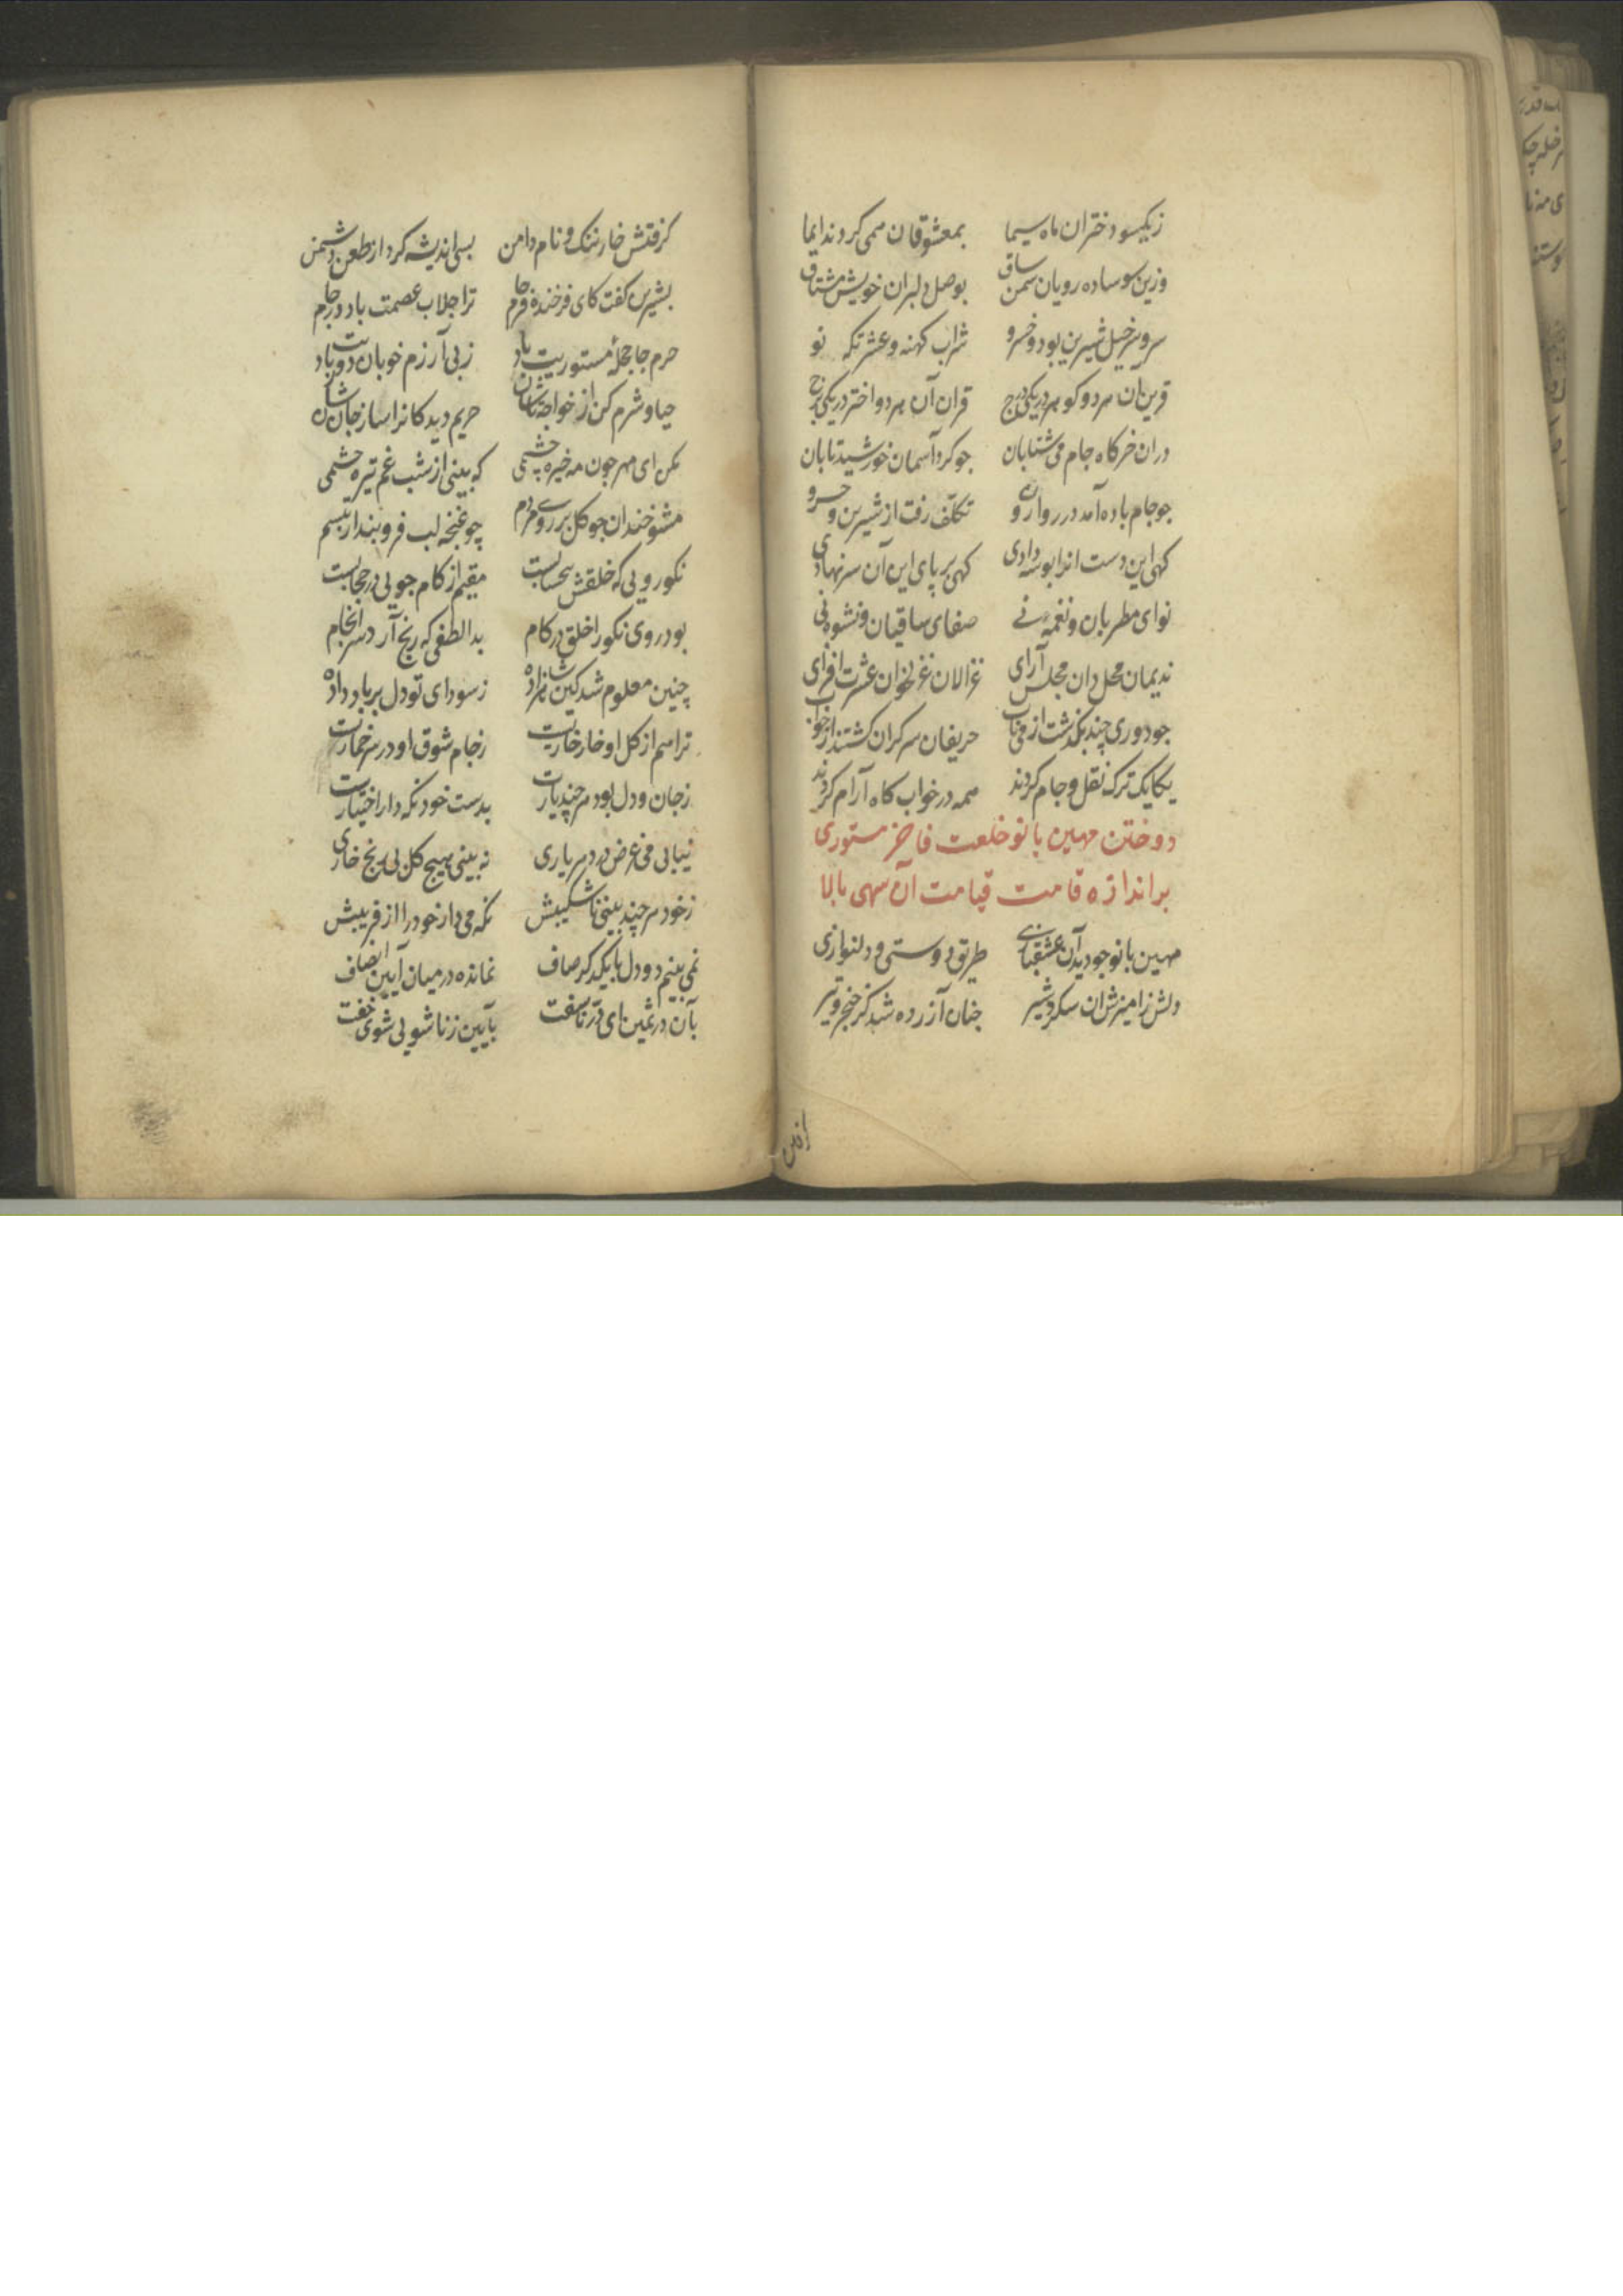 زیکسو دختران ماه سیما بمعشوقان همی کردند ایما
وزین سو ساده رویان سمن ساق بوصل دلبران خویش مشتاق
سر و سرخیل شیرین بود و خسرو شراب کهنه و عشرتکه نو
قرین آن هر دو گوهر در یکی درج قران آن هر دو اختر در یکی برج
در آن خرگاه جام می شتابان چو گرد آسمان خورشید تابان
چو جام باده آمد در روارو تکلف رفت از شیرین و خسرو
گهی این دست انرا بوسه دادی گهی بر پای این آن سر نهادی
نوای مطربان و نغمه نی صفای ساقیان و نشوه می
ندیمان محل دان مجلس آرای غزالان غزلخوان عشرت افزای
چو دوری چند بگذشت از می ناب حریفان سرگران گشتند از خواب
یکایک ترک نقل و جام کردند همه در خواب گاه آرام کردند
دوختن مهین بانو خلعت فاخر مستوری
بر اندازه قامت قیامت آن سهی بالا
مهین بانو چو دید آن عشقبازی طریق دوستی و دلنوازی
دلش زامیزش آن شکر و شیر چنان آزرده شد کز خنجر و تیر
گرفتش خار ننگ و نام دامن بسی اندیشه کرد از طعن دشمن
بشیرین گفت کای فرخنده فرجام ترا جلاب عصمت باد در جام
حرم جا حجلهٔ مستوریت باد ز بی آزرم خوبان دوریت باد
حیا و شرم کن از خواجه تاشان حریم دیدگانرا ساز جاشان
مکن ای مهر چون مه خیره چشمی که بینی از شب غم تیره چشمی
مشو خندان چو گل بر روی مردم چو غنچه لب فرو بند از تبسم
نکورویی که خلقش بیحسابست مقیم از کام جویی در حجابست
بود روی نکو را خلق در کام بدا لطفی که رنج آرد سرانجام
چنین معلوم شد کین شاهزاده ز سودای تو دل بر باد داده
ترا هم از گل او خار خاریست ز جام شوق او در سر خماریست
ز جان و دل بود هر چند یارت بدست خود نگه دار اختیارت
نیابی بی غرض در دهر یاری نه بینی هیچ گل بی رنج خاری
ز خود هر چند بینی ناشکیبش نگه می دار خود را از فریبش
نمی بینم دو دل با یکدگر صاف نمانده در میان آیین انصاف
بآن در ثمین ای در ناسفت بآیین زناشویی شوی جفت